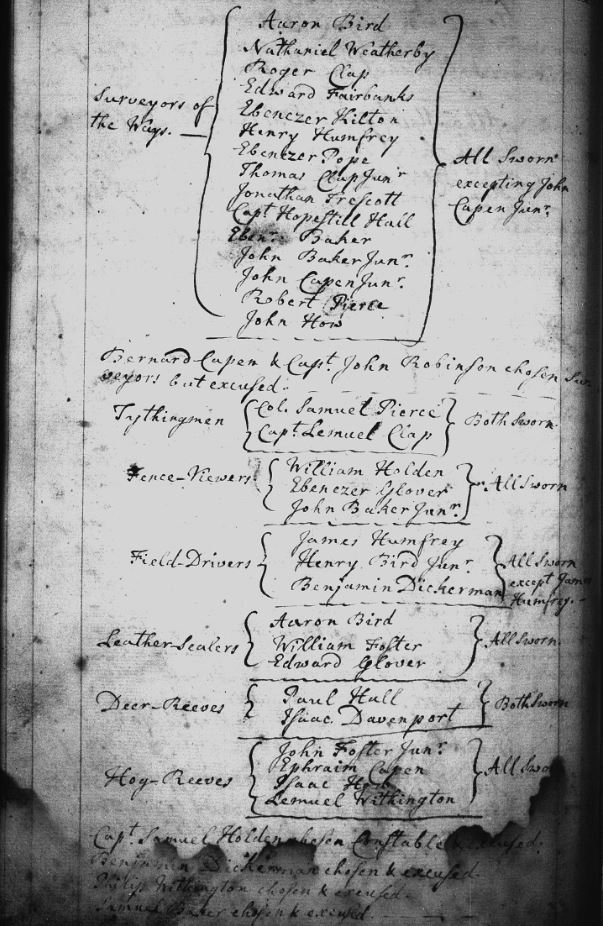 Aaron Bird
Nathaniel Weatherby
Roger Clap
Edward Fairbanks
Surveyors of
the Ways. —
Ebenezer Kilton
Henry Humfrey
Ebenezer Pope
Thomas Clap Junr
All Sworn
excepting John
Capen Junr.
Jonathan Trescott
Capt Hopestill Hall
Ebenr. Baker
John Baker Junr.
John Capen Junr.
Robert Pierce
John How
Bernard Capen & Capt. John Robinson chosen Sur
veyors but excused.
Tythingmen Col. Samuel Pierce Both Sworn.
Capt Lemuel Clap
Fence-Viewers William Holden
Ebenezer Glover All Sworn
John Baker Junr.
Field-Drivers James Humfrey
Henry Bird Junr.
Benjamin Dickerman
All Sworn
except James
Humfrey. -
Leather-Sealers Aaron Bird
William Foster All Sworn.
Edward Glover
Deer-Reeves Paul Hall Both Sworn
Isaac Davenport
Hog-Reeves John Foster Junr.
Ephraim Capen All
Isaac
Lemuel Withington
Capt. Samuel Holden chosen Constable & excused.
Benjamin Dickerman chosen & excused.
Philip Withington chosen & excused.
Samuel Baker chosen & excused.